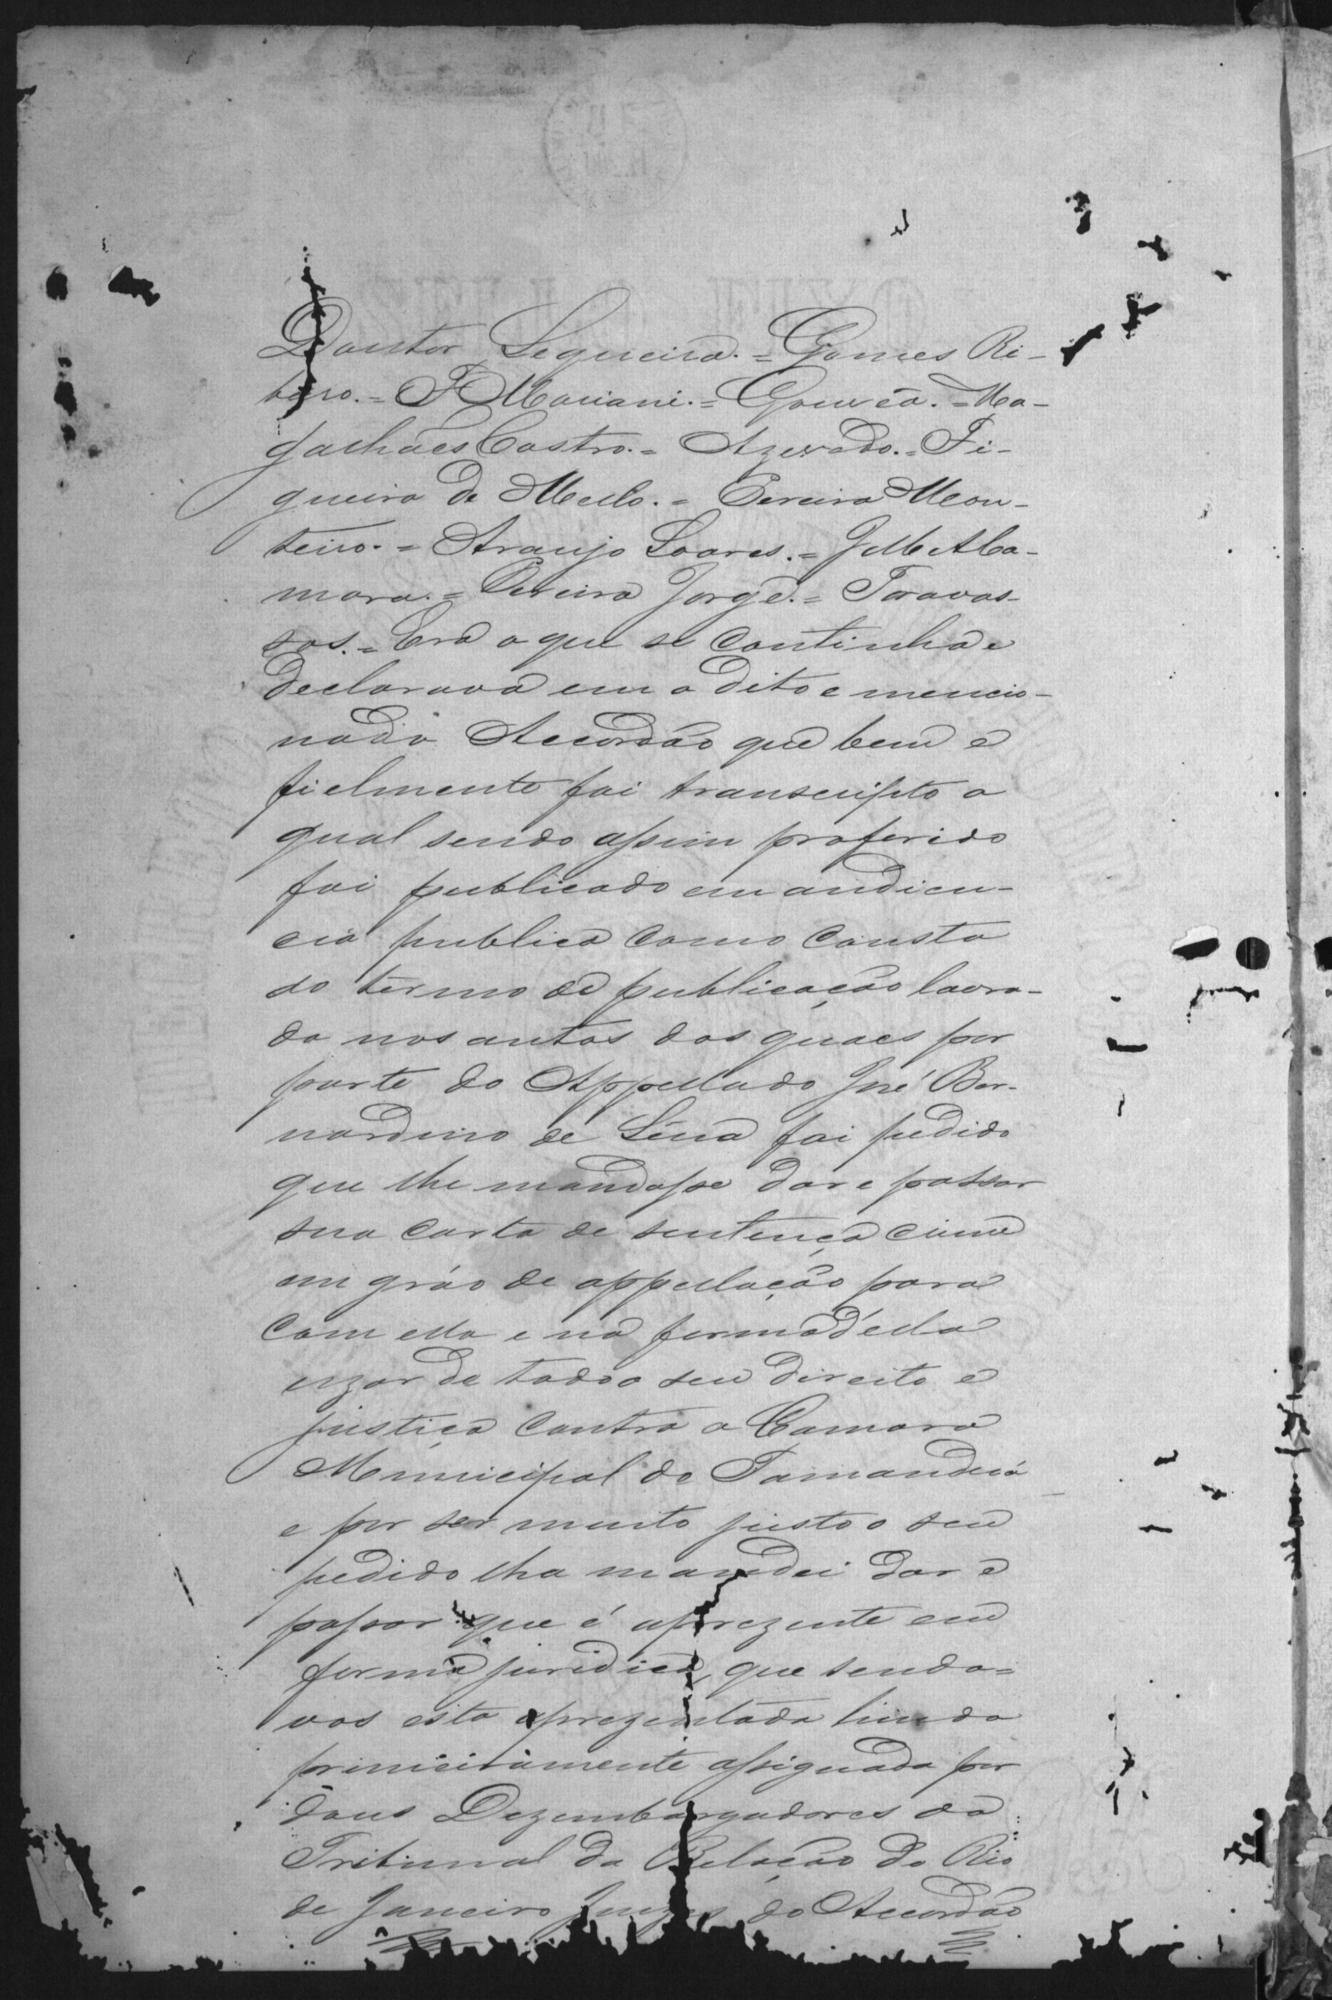 Doutor Sequeira. = Gomes Ri-
beiro. = F Mariani. = Gouvêa. = Ma-
galhães Castro. = Azevedo. = Fi-
gueira de Mello. = Pereira Mon-
teiro. = Araujo Soares. = J M A Ca-
mara. = Pereira Jorge. = Travas-
sos. = Era o que se continha e
declarava em o dito e mencio-
nado Accordão que bem e
fielmente foi transcripto o
qual sendo assim proferido
foi publicado em audien-
cia publica como consta
do termo de publicação lavra-
do nos autos dos quaes por
parte do Appellado José Ber-
nardino de Séna foi pedido
que lhe mandasse dar e passar
sua carta de sentença civel
em gráo de appellação para
com ella e na forma d'ella
uzar de todo o seu direito e
justiça contra a Camara
Municipal do Tamanduá
e por ser muito justo o seu
pedido lha mandei dar e
passar que é aprezente em
forma juridica, que sendo-
vos esta aprezentada hindo
primeiramente assignada por
dous Dezembargadores do
Tribunal da Relação do Rio
de Janeiro Juizes do Accordão